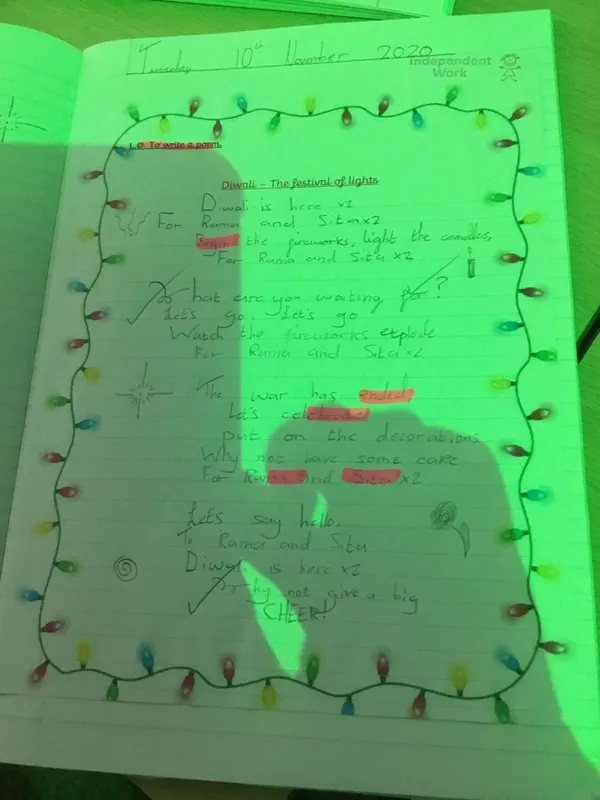 Tuesday 10th November 2020
Independent
Work
L.O. To write a poem.
Diwali – The festival of lights
Diwali is here x2
For Rama and Sita x2
Begin the fireworks, light the candles,
For Rama and Sita x2
What are you waiting for?
Let's go, Let's go
Watch the fireworks explode
For Rama and Sita x2
The war has ended
Let's celebrate
put on the decorations
Why not have some cake
For Rama and Sita x2
Let's say hello,
To Rama and Sita
Diwali is here x2
Why not give a big
CHEER!